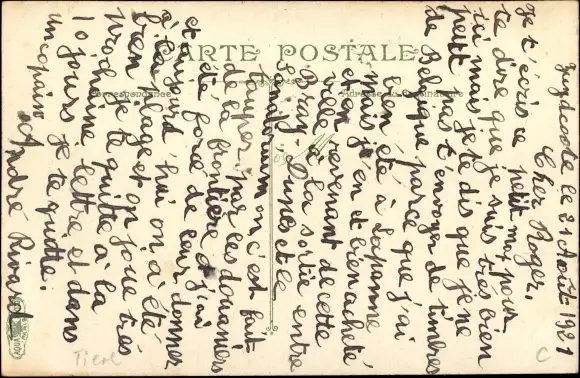 CARTE POSTALE
Correspondance
Zuydcoote le 21 Août 1921
Cher Roger.
Je t'écris ce petit mot pour
te dire que je suis très bien
ici mais je te dis que je ne
peut pas t'envoyer de timbres
de Belgique parce que j'ai
bien été à Lapanne
mais j'en et bien acheté
et en revenant de cette
ville à la sortie entre
Bray-Dunes et le
Sanatorium on c'est fait
couper par les douaniers
de la frontière et j'ai
été forcé de leur donner
et aujourd'hui on a été
à la plage et on joue très
bien je te quitte à la
prochaine lettre et dans
10 jours je te quitte.
un copain André Rivard
Tiere
C